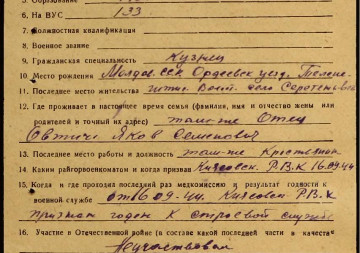 6. На ВУС 133
7. Должностная квалификация
8. Военное звание
9. Гражданская специальность Кузнец
10. Место рождения Молдав. ССР Оргеевск уезд,
11. Последнее место жительства
12. Где проживает в настоящее время семья (фамилия, имя и отчество жены или
родителей и точный их адрес) там-же Отец
Яков Семенович
13. Последнее место работы и должность там-же Крестьянин
14. Каким райгорвоенкоматом и когда призван Р.В.К 16.09.44
15. Когда и где проходил последний раз медкомиссию и результат годности к
военной службе от 16 09-44. Р.В.К
признан годен к строевой службе
16. Участие в Отечественной войне (в составе какой последней части в качестве
Неучаствовал